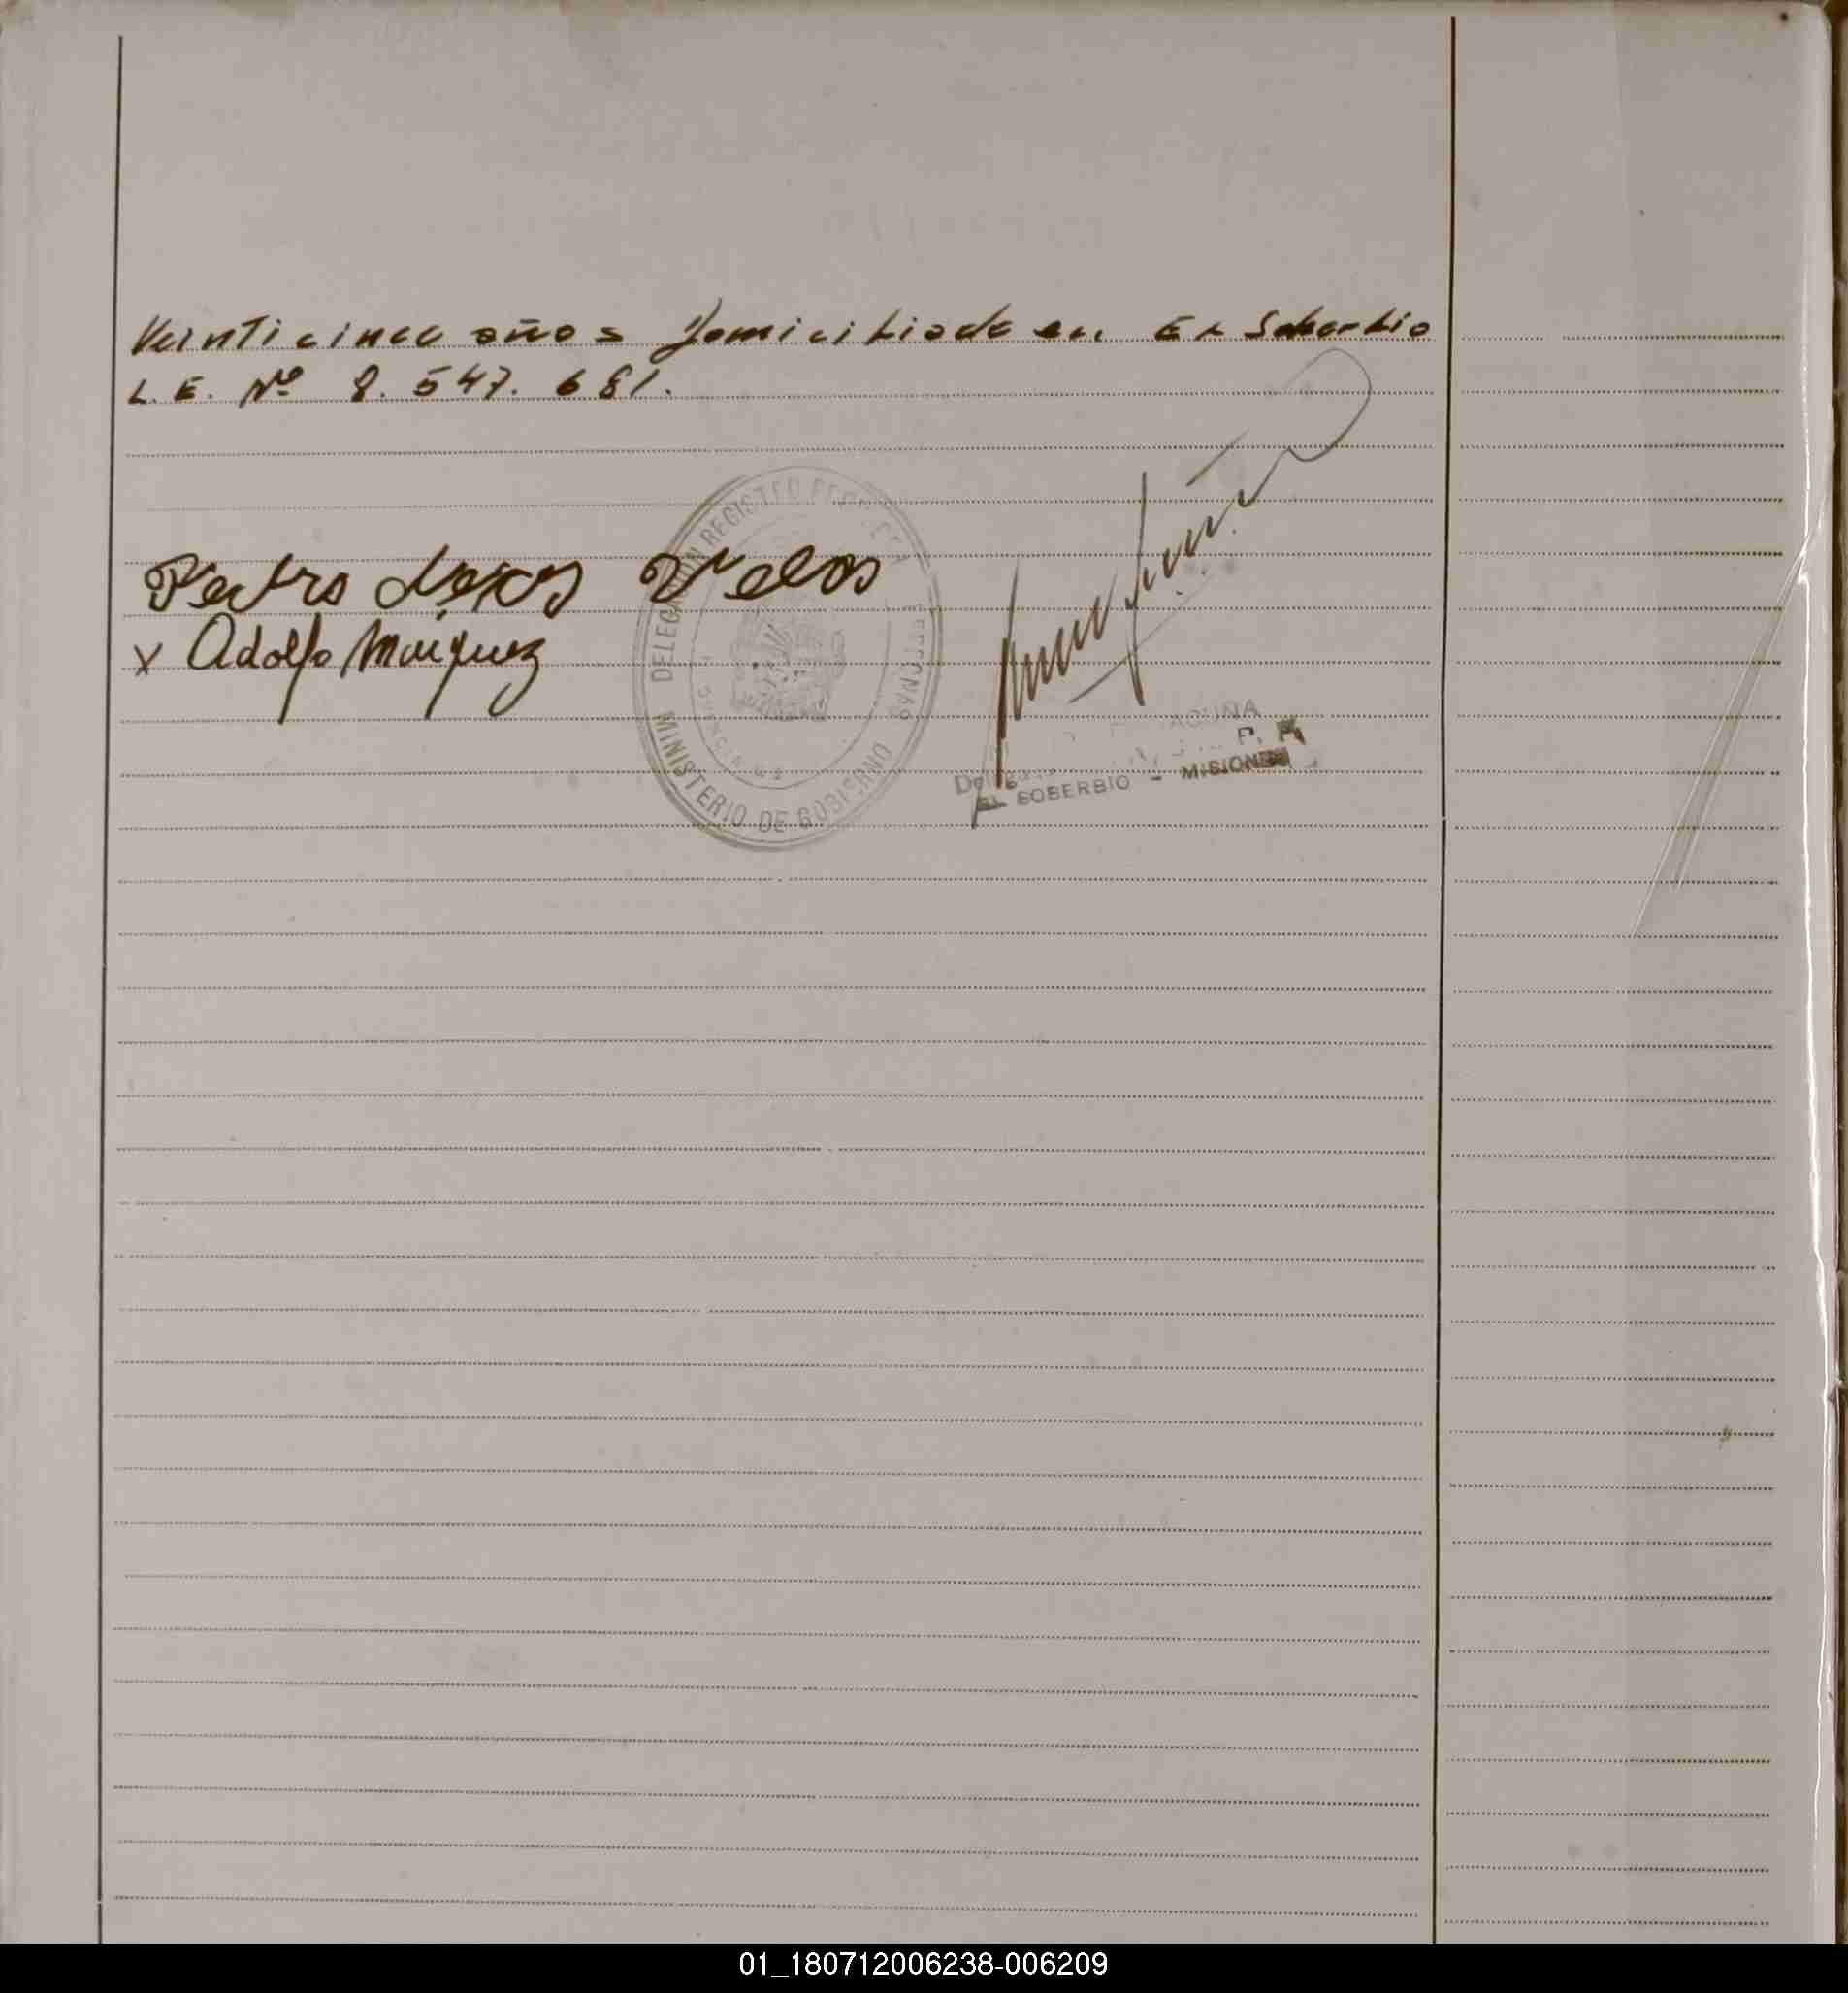 Veinticinco años domiciliado en El Soberbio
L. E. Nº 8. 547. 681.
Pedro Velos
x Adolfo Marquez
DELEGACION REGISTRO
MINISTERIO DE GOBIERNO
ACUÑA
P. P.
EL SOBERBIO - MISIONES
01_180712006238-006209